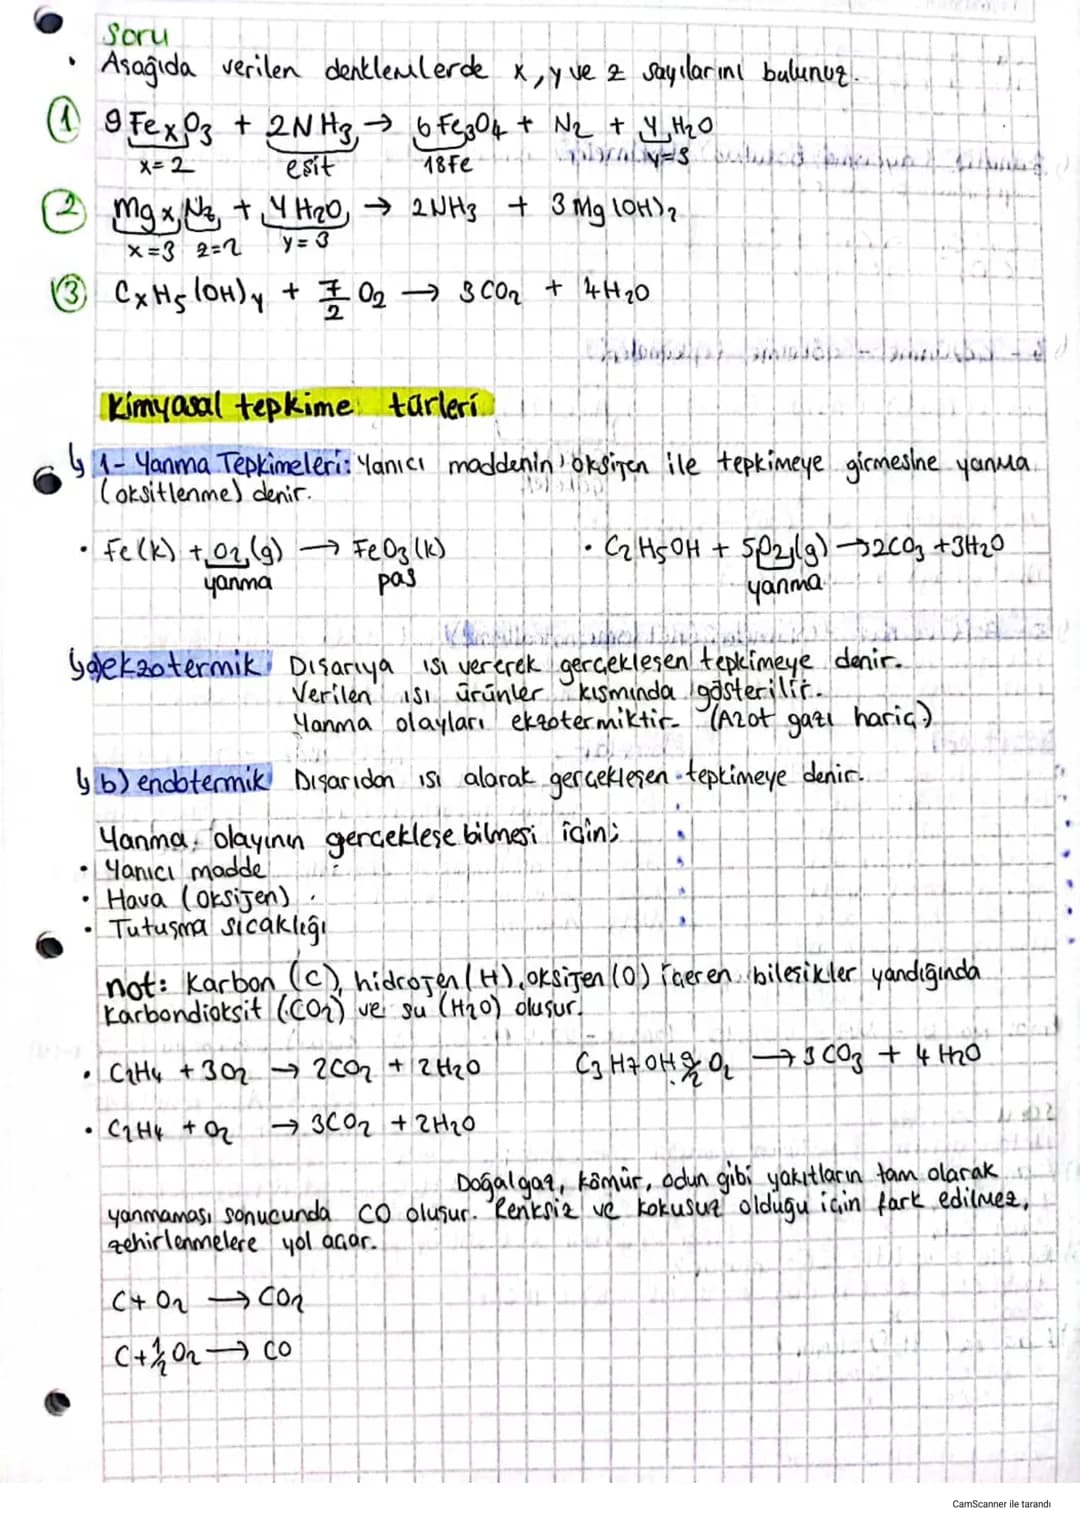 Soru
• Aşağıda verilen denklemlerde x, y ve z sayılarını bulunuz.
① 9FexO3 + 2NH3 → 6Fe3O4 + N2 + yH2O
x=2 eşit 18Fe
② MgxNz + yH2O → 2NH3 + 3Mg(OH)2
x=3 z=2 y=3
③ CxH5(OH)y + 7/2 O2 → 3CO2 + 4H2O
Kimyasal tepkime türleri
↳ 1- Yanma Tepkimeleri: Yanıcı maddenin oksijen ile tepkimeye girmesine yanma
(oksitlenme) denir.
• Fe(k) + O2(g) → FeO3(k) • C2H5OH + 5O2(g) → 2CO3 + 3H2O
yanma pas yanma
↳ a) ekzotermik Dışarıya ısı vererek gerçekleşen tepkimeye denir.
Verilen ısı ürünler kısmında gösterilir.
Yanma olayları ekzotermiktir. (Azot gazı hariç)
↳ b) endotermik Dışarıdan ısı alarak gerçekleşen tepkimeye denir.
Yanma olayının gerçekleşebilmesi için;
• Yanıcı madde
• Hava (oksijen)
• Tutuşma sıcaklığı
not: Karbon (C), hidrojen (H), oksijen (O) içeren bileşikler yandığında
karbondioksit (CO2) ve su (H2O) oluşur.
• C2H4 + 3O2 → 2CO2 + 2H2O C3H7OH 9/2 O2 → 3CO3 + 4H2O
• C2H4 + O2 → 3CO2 + 2H2O
Doğalgaz, kömür, odun gibi yakıtların tam olarak
yanmaması sonucunda CO oluşur. Renksiz ve kokusuz olduğu için fark edilmez,
zehirlenmelere yol açar.
C + O2 → CO2
C + 1/2 O2 → CO
CamScanner ile tarandı